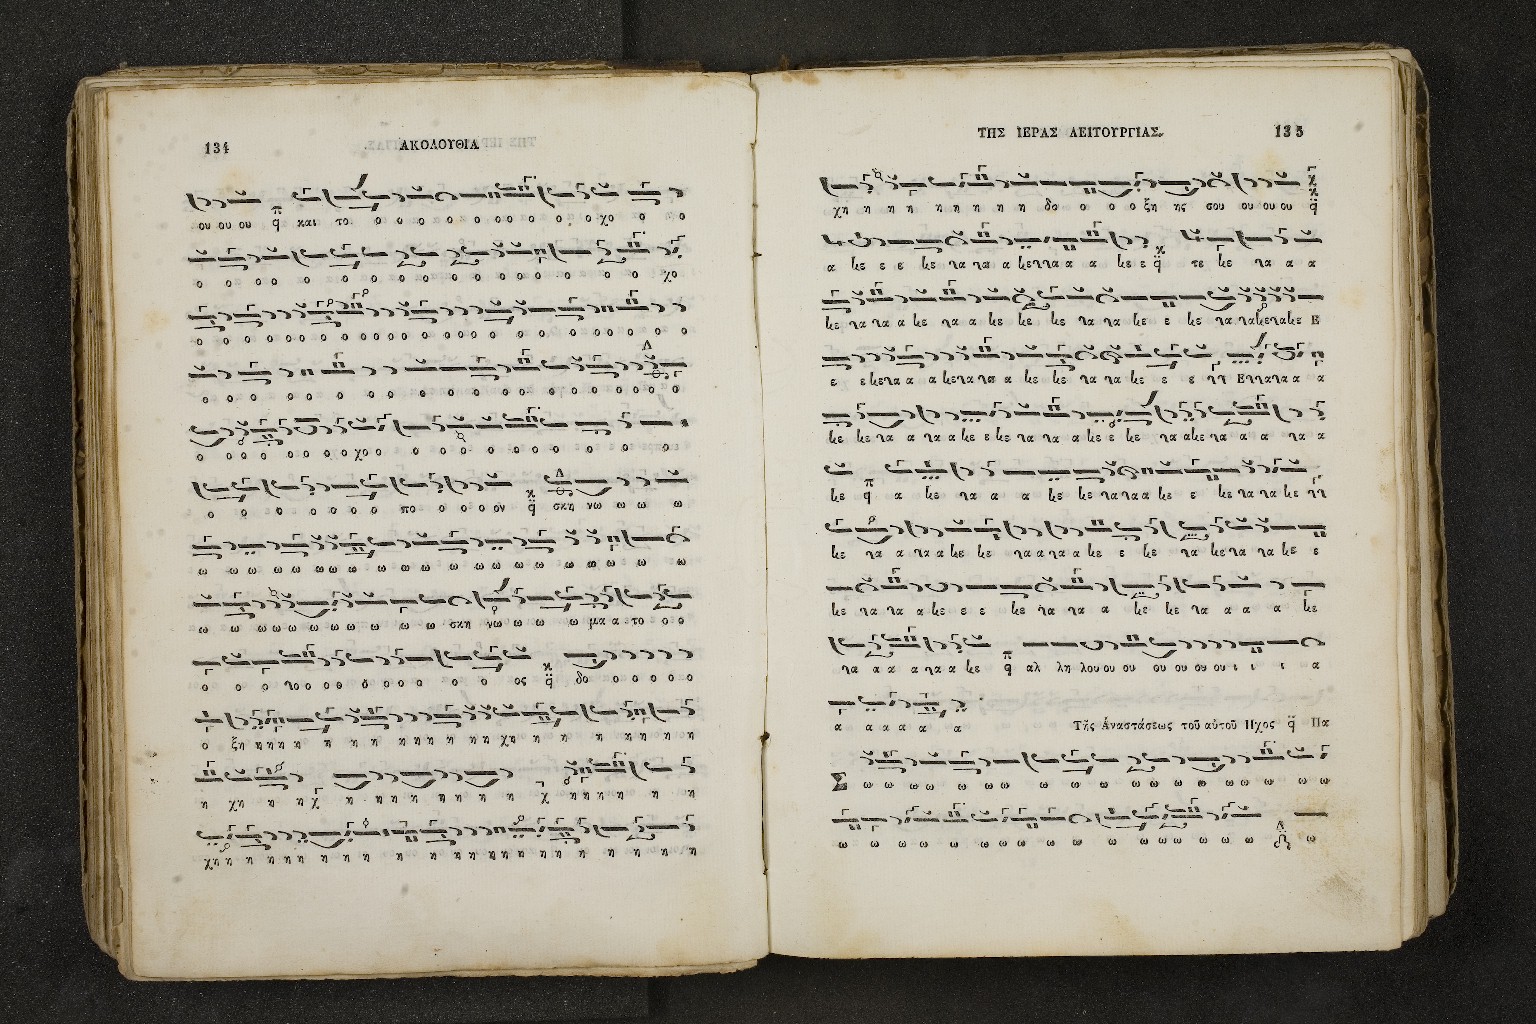 134
ΑΚΟΛΟΥΘΙΑ
ου ου ου q̈ και το ο ο ο ο ο ο ο ο ο ο ο χο ο ο
ο ο ο ο ο ο ο ο ο ο ο ο ο ο ο ο ο χο
ο ο ο ο ο ο ο ο ο ο ο ο ο ο ο ο ο ο ο ο ο ο ο ο ο
ο ο ο ο ο ο ο ο ο ο ο ο ο ο ο ο ο ο ο
ο ο ο ο ο ο ο ο ο χο ο ο ο ο ο ο ο ο ο ο ο
ο ο ο ο ο ο ο πο ο ο ο ον q̈ σκη νω ω ω ω ω
ω ω ω ω ω ω ω ω ω ω ω ω ω ω ω ω ω ω ω
ω ω ω ω ω ω ω ω ω ω ω σκη νω ω ω ω μα α το ο ο
ο ο ο το ο ο ο ο ο ο ο ο ο ος q̈ δο ο ο ο ο ο
ο ξη η η η η η η η η η η η η η χη η η η η η η
η χη η η χ η η η η η η η η η χ η η η η η η
χη η η η η η η η η η η η η η η η η η η η η η η
ΤΗΣ ΙΕΡΑΣ ΛΕΙΤΟΥΡΓΙΑΣ.
135
χη η η η η η η η η δο ο ο ο ξη ης σου ου ου ου q̈
α κε ε ε κε τα τα α κετια α α κε ε q̈ τε κε τα α α
κε τα τα α κε τα α κε κε κε τα τα κε ε κε τα τακετακε Ε
ε εκετα α α κετα τα α κε κε τα τα κε ε ε τι Ετιατα α α
κε κε τα α τα α κε ε κε τα τα α κε ε κε τα ακε τα α α τα α
κε q̈ α κε τα α α κε κε τα τα α κε ε κε τα τα κε τι
κε τα α τα α κε κε τα α τα α κε ε κε τα κε τα τα κε ε
κε τα τα α κε ε ε κε τα τα α κε κε τα α α α κε
τα α α α τα α κε q̈ αλ λη λου ου ου ου ου ου ου ι ι ι α
α α α α α α
Τῆς Ἀναστάσεως τοῦ αὐτοῦ Ηχος q̈ Πα
Σ ω ω ω ω ω ω ω ω ω ω ω ω ω ω ω ω ω ω ω ω
ω ω ω ω ω ω ω ω ω ω ω ω ω ω ω ω ω